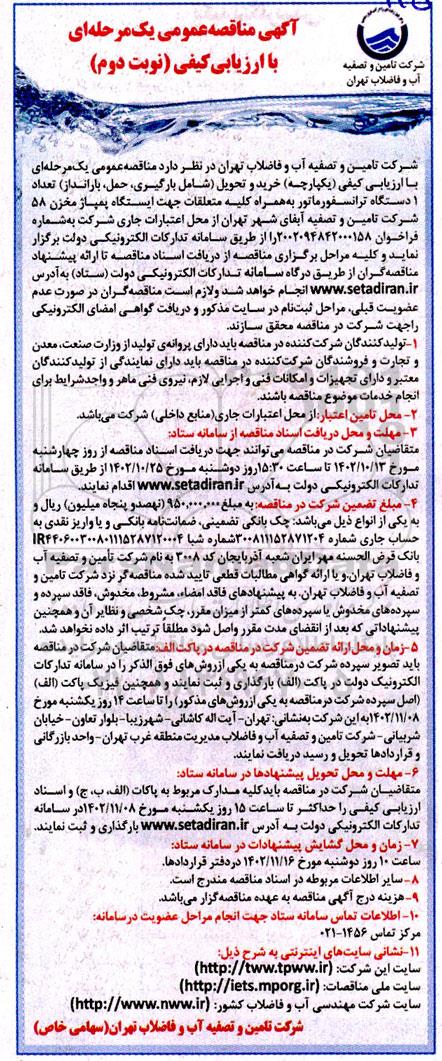 شرکت تامین و تصفیه
آب و فاضلاب تهران
آگهی مناقصه عمومی یک مرحله‌ای
با ارزیابی کیفی (نوبت دوم)
شرکت تامین و تصفیه آب و فاضلاب تهران در نظر دارد مناقصه عمومی یک مرحله‌ای
با ارزیابی کیفی (یکپارچه) خرید و تحویل (شامل بارگیری، حمل، بارانداز) تعداد
۱ دستگاه ترانسفورماتور به‌همراه کلیه متعلقات جهت ایستگاه پمپاژ مخزن ۵۸
شرکت تامین و تصفیه آبفای شهر تهران از محل اعتبارات جاری شرکت به‌شماره
فراخوان ۲۰۰۲۰۹۴۸۴۲۰۰۰۱۵۸ را از طریق سامانه تدارکات الکترونیکی دولت برگزار
نماید و کلیه مراحل برگزاری مناقصه از دریافت اسناد مناقصه تا ارائه پیشنهاد
مناقصه‌گران از طریق درگاه سامانه تدارکات الکترونیکی دولت (ستاد) به‌آدرس
www.setadiran.ir انجام خواهد شد ولازم است مناقصه‌گران در صورت عدم
عضویت قبلی، مراحل ثبت‌نام در سایت مذکور و دریافت گواهی امضای الکترونیکی
راجهت شرکت در مناقصه محقق سازند.
۱-تولیدکنندگان شرکت‌کننده در مناقصه باید دارای پروانه‌ی تولید از وزارت صنعت، معدن
و تجارت و فروشندگان شرکت‌کننده در مناقصه باید دارای نمایندگی از تولیدکنندگان
معتبر و دارای تجهیزات و امکانات فنی و اجرایی لازم، نیروی فنی ماهر و واجدشرایط برای
انجام خدمات موضوع مناقصه باشند.
۲- محل تامین اعتبار: از محل اعتبارات جاری(منابع داخلی) شرکت می‌باشد.
۳- مهلت و محل دریافت اسناد مناقصه از سامانه ستاد:
متقاضیان شرکت در مناقصه می‌توانند جهت دریافت اسناد مناقصه از روز چهارشنبه
مورخ ۱۴۰۲/۱۰/۱۳ تا ساعت ۱۵:۳۰ روز دوشنبه مورخ ۱۴۰۲/۱۰/۲۵ از طریق سامانه
تدارکات الکترونیکی دولت به‌آدرس www.setadiran.ir اقدام نمایند.
۴- مبلغ تضمین شرکت در مناقصه: به مبلغ ۹۵۰,۰۰۰,۰۰۰ (نهصدو پنجاه میلیون) ریال و
به یکی از انواع ذیل می‌باشد: چک بانکی تضمینی، ضمانت‌نامه بانکی و یا واریز نقدی به
حساب جاری شماره ۳۰۰۸۱۱۱۵۲۸۷۱۲۰۴ شماره شبا IR۴۴۰۶۰۰۳۰۰۸۰۱۱۱۵۲۸۷۱۲۰۰۴
بانک قرض الحسنه مهر ایران شعبه آذربایجان کد ۳۰۰۸ به نام شرکت تأمین و تصفیه آب
و فاضلاب تهران.و یا ارائه گواهی مطالبات قطعی تایید شده مناقصه‌گر نزد شرکت تامین و
تصفیه آب و فاضلاب تهران. به پیشنهادهای فاقد امضاء، مشروط، مخدوش، فاقد سپرده و
سپرده‌های مخدوش یا سپرده‌های کمتر از میزان مقرر، چک شخصی و نظایر آن و همچنین
پیشنهاداتی که بعد از انقضای مدت مقرر واصل شود مطلقاً ترتیب اثر داده نخواهد شد.
۵-زمان و محل ارائه تضمین شرکت در مناقصه در پاکت الف: متقاضیان شرکت در مناقصه
باید تصویر سپرده شرکت درمناقصه به یکی ازروش‌های فوق الذکر را در سامانه تدارکات
الکترونیک دولت در پاکت (الف) بارگذاری و ثبت نمایند و همچنین فیزیک پاکت (الف)
(اصل سپرده شرکت درمناقصه به یکی ازروش‌های مذکور) را تا ساعت ۱۴ روز یکشنبه مورخ
۱۴۰۲/۱۱/۰۸ به این شرکت به‌نشانی: تهران- آیت اله کاشانی-شهرزیبا-بلوار تعاون-خیابان
شربیانی- شرکت تامین و تصفیه آب و فاضلاب مدیریت منطقه غرب تهران-واحد بازرگانی
و قراردادها تحویل و رسید دریافت نمایند.
۶- مهلت و محل تحویل پیشنهادها در سامانه ستاد:
متقاضیان شرکت در مناقصه بایدکلیه مدارک مربوط به پاکات (الف، ب، ج) و اسناد
ارزیابی کیفی را حداکثر تا ساعت ۱۵ روز یکشنبه مورخ ۱۴۰۲/۱۱/۰۸ در سامانه
تدارکات الکترونیکی دولت به آدرس www.setadiran.ir بارگذاری و ثبت نمایند.
۷- زمان و محل گشایش پیشنهادات در سامانه ستاد:
ساعت ۱۰ روز دوشنبه مورخ ۱۴۰۲/۱۱/۱۶ دردفتر قراردادها.
۸-سایر اطلاعات مربوطه در اسناد مناقصه مندرج است.
۹- هزینه درج آگهی مناقصه به عهده مناقصه‌گزار می‌باشد.
۱۰-اطلاعات تماس سامانه ستاد جهت انجام مراحل عضویت درسامانه:
مرکز تماس ۱۴۵۶-۰۲۱
۱۱-نشانی سایت‌های اینترنتی به شرح ذیل:
سایت این شرکت: (http://tww.tpww.ir)
سایت ملی مناقصات: (http://iets.mporg.ir)
سایت شرکت مهندسی آب و فاضلاب کشور: (http://www.nww.ir)
شرکت تامین و تصفیه آب و فاضلاب تهران(سهامی خاص)